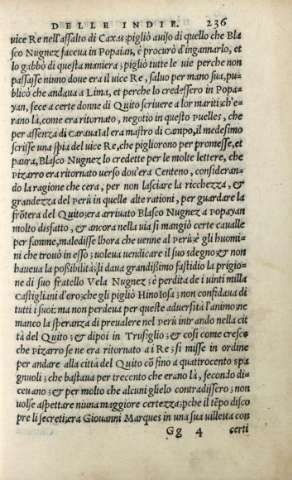 DELLE INDIE. 236
uice Re nell'assalto di Caxas pigliò auiso di quello che Bla
sco Nugnez faceua in Popaian, è procurò d'ingannarlo, et
lo gabbò di questa maniera; pigliò tutte le uie perche non
passasse ninno doue era il uice Re, saluo per mano sua, pu-
blicò che andaua a Lima, et perche lo credessero in Popa-
yan, fece a certe donne di Quito scriuere a lor mariti, ch'e-
rano là, come era ritornato, negotio in questo
per assenza di Carauaial era mastro di Campo, il medesimo
scrisse una spia del uice Re, che pigliorono per promesse, et
paura, Blasco Nugnez lo credette per le molte lettere, che
Pizarro era ritornato uerso dou'era Centeno, consideran-
do la ragione che cera, per non lasciare la ricchezza, &
grandezza del Perù in quelle alterationi, per guardare la
frõtera del Quito; era arriuato Blasco Nugnez a Popayan
molto disfatto, & ancora nella uia si mangiò certe caualle
per famme, maledisse lhora che uenne al perù è gli huomi-
ni che trouò in esso; uoleua uendicare il suo sdegno & non
haueua la possibilità; li daua grandissimo fastidio la prigio-
ne di suo fratello Vela Nugnez; è perdita de i uinti milla
Castigliani d'oro; che gli pigliò Hinoiosa; non confidaua di
tutti i suoi: ma non perdeua per queste aduersità l'animo ne
manco la speranza di preualere nel perù intrando nella cit
tà del Quito & dipoi in Trusiglio; & cosi come cresce
che pizarro se ne era ritornato ai Re; si misse in ordine
per andare alla città del Quito cõ sino a quattrocento spa
gnuoli; che bastaua per trecento che erano là, secondo di-
ceuano; & per molto che alcuni glielo contradissero; non
uolse aspettare niuna maggiore certezza; pche il tẽpo disco
pre li secreti; era Giouanni Marques in una sua uilletta con
Gg 4 certi